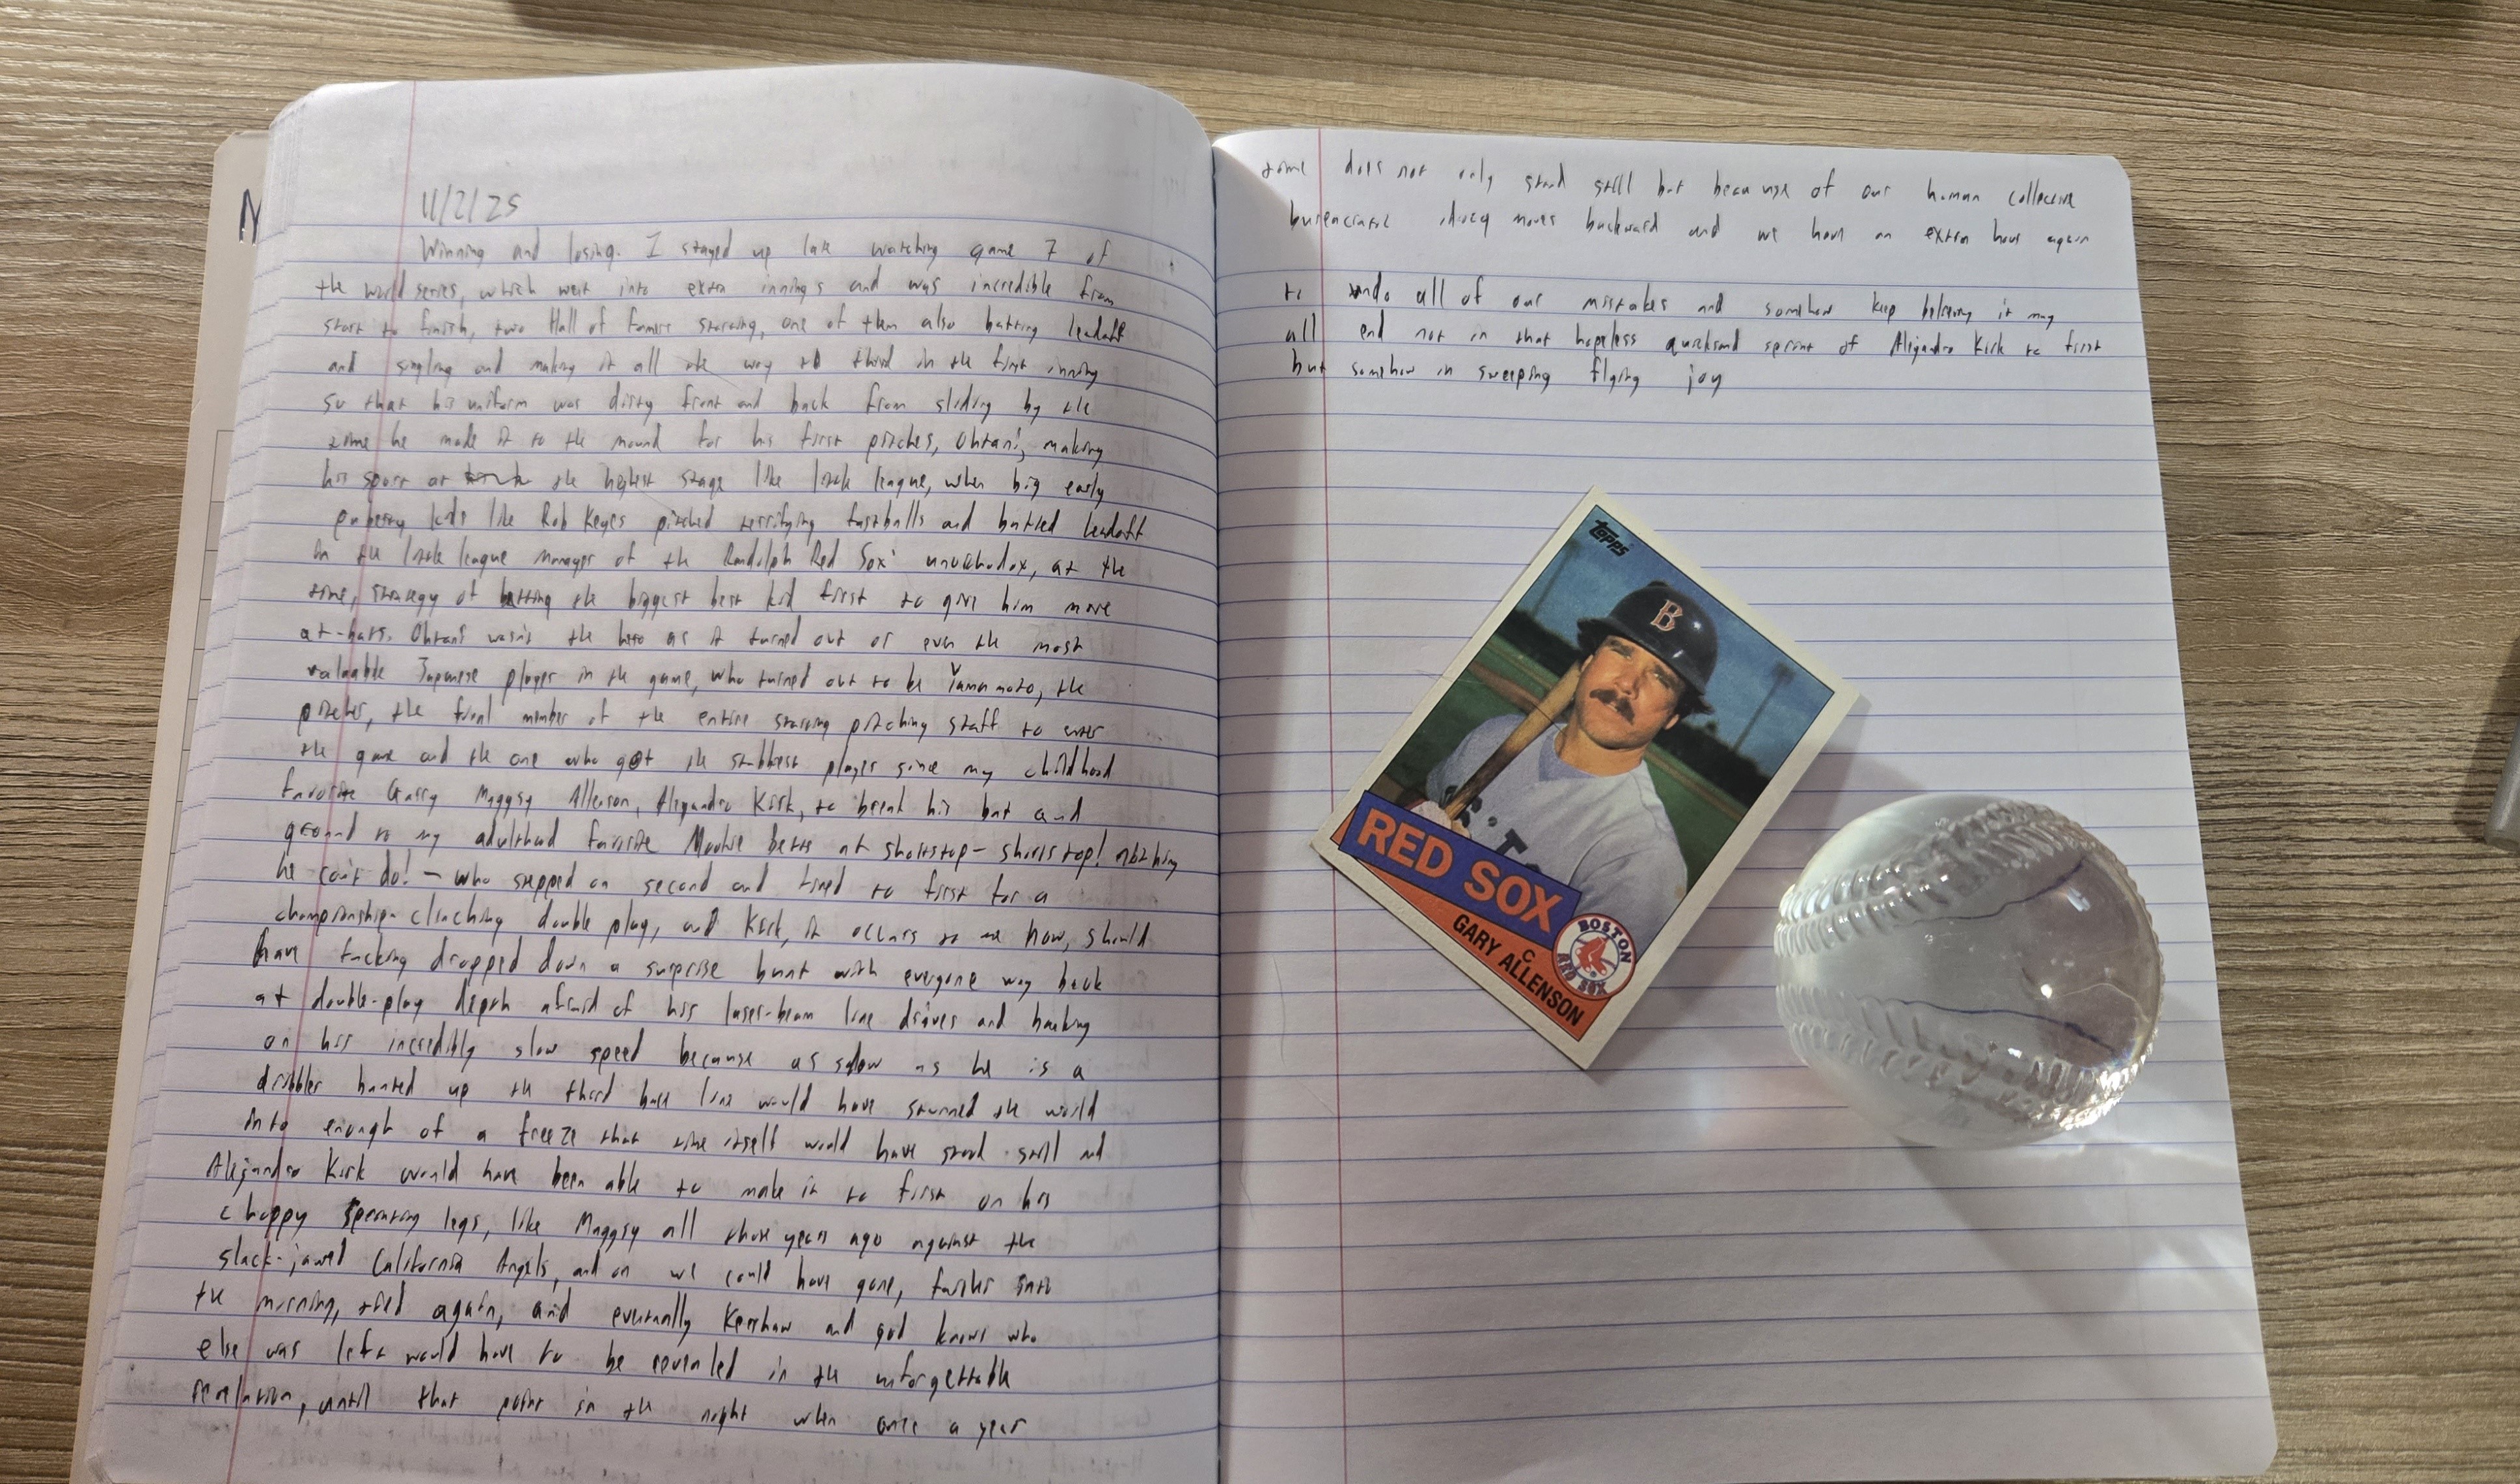 11/2/25
Winning and losing. I stayed up late watching game 7 of
the world series, which went into extra innings and was incredible from
start to finish, two Hall of Famers starting, one of them also batting leadoff
and singling and making it all the way to third in the first inning
so that his uniform was dirty front and back from sliding by the
time he made it to the mound for his first pitches, Ohtani, making
his sport at the highest stage like little league, when big early
puberty kids like Rob Keyes pitched terrifying fastballs and batted leadoff
in the little league manager of the Randolph Red Sox' unorthodox, at the
time, strategy of batting the biggest best kid first to give him more
at-bats. Ohtani wasn't the hero as it turned out or even the most
valuable Japanese player in the game, who turned out to be Yamamoto, the
pitcher, the final member of the entire starting pitching staff to enter
the game and the one who got the stubbiest player since my childhood
favorite Garry Muggsy Allenson, Alejandro Kirk, to break his bat and
ground to my adulthood favorite Mookie Betts at shortstop - shortstop! nothing
he can't do! - who stepped on second and fired to first for a
championship-clinching double play, and Kirk, it occurs to me now, should
have fucking dropped down a surprise bunt with everyone way back
at double-play depth afraid of his laser-beam line drives and banking
on his incredibly slow speed because as slow as he is a
dribbler bunted up the third base line would have stunned the world
into enough of a freeze that time itself would have stood still and
Alejandro Kirk would have been able to make it to first on his
choppy sprinting legs, like Muggsy all those years ago against the
slack-jawed California Angels, and on we could have gone, further into
the morning, tied again, and eventually Kershaw and god knows who
else was left would have to be revealed in the unforgettable
revelation, until that point in the night when once a year
time does not only stand still but because of our human collective
bureaucratic idiocy moves backward and we have an extra hour again
to undo all of our mistakes and somehow keep believing it may
all end not in that hopeless quicksand sprint of Alejandro Kirk to first
but somehow in sweeping flying joy
Topps
B
RED SOX
C
GARY ALLENSON
BOSTON
RED SOX